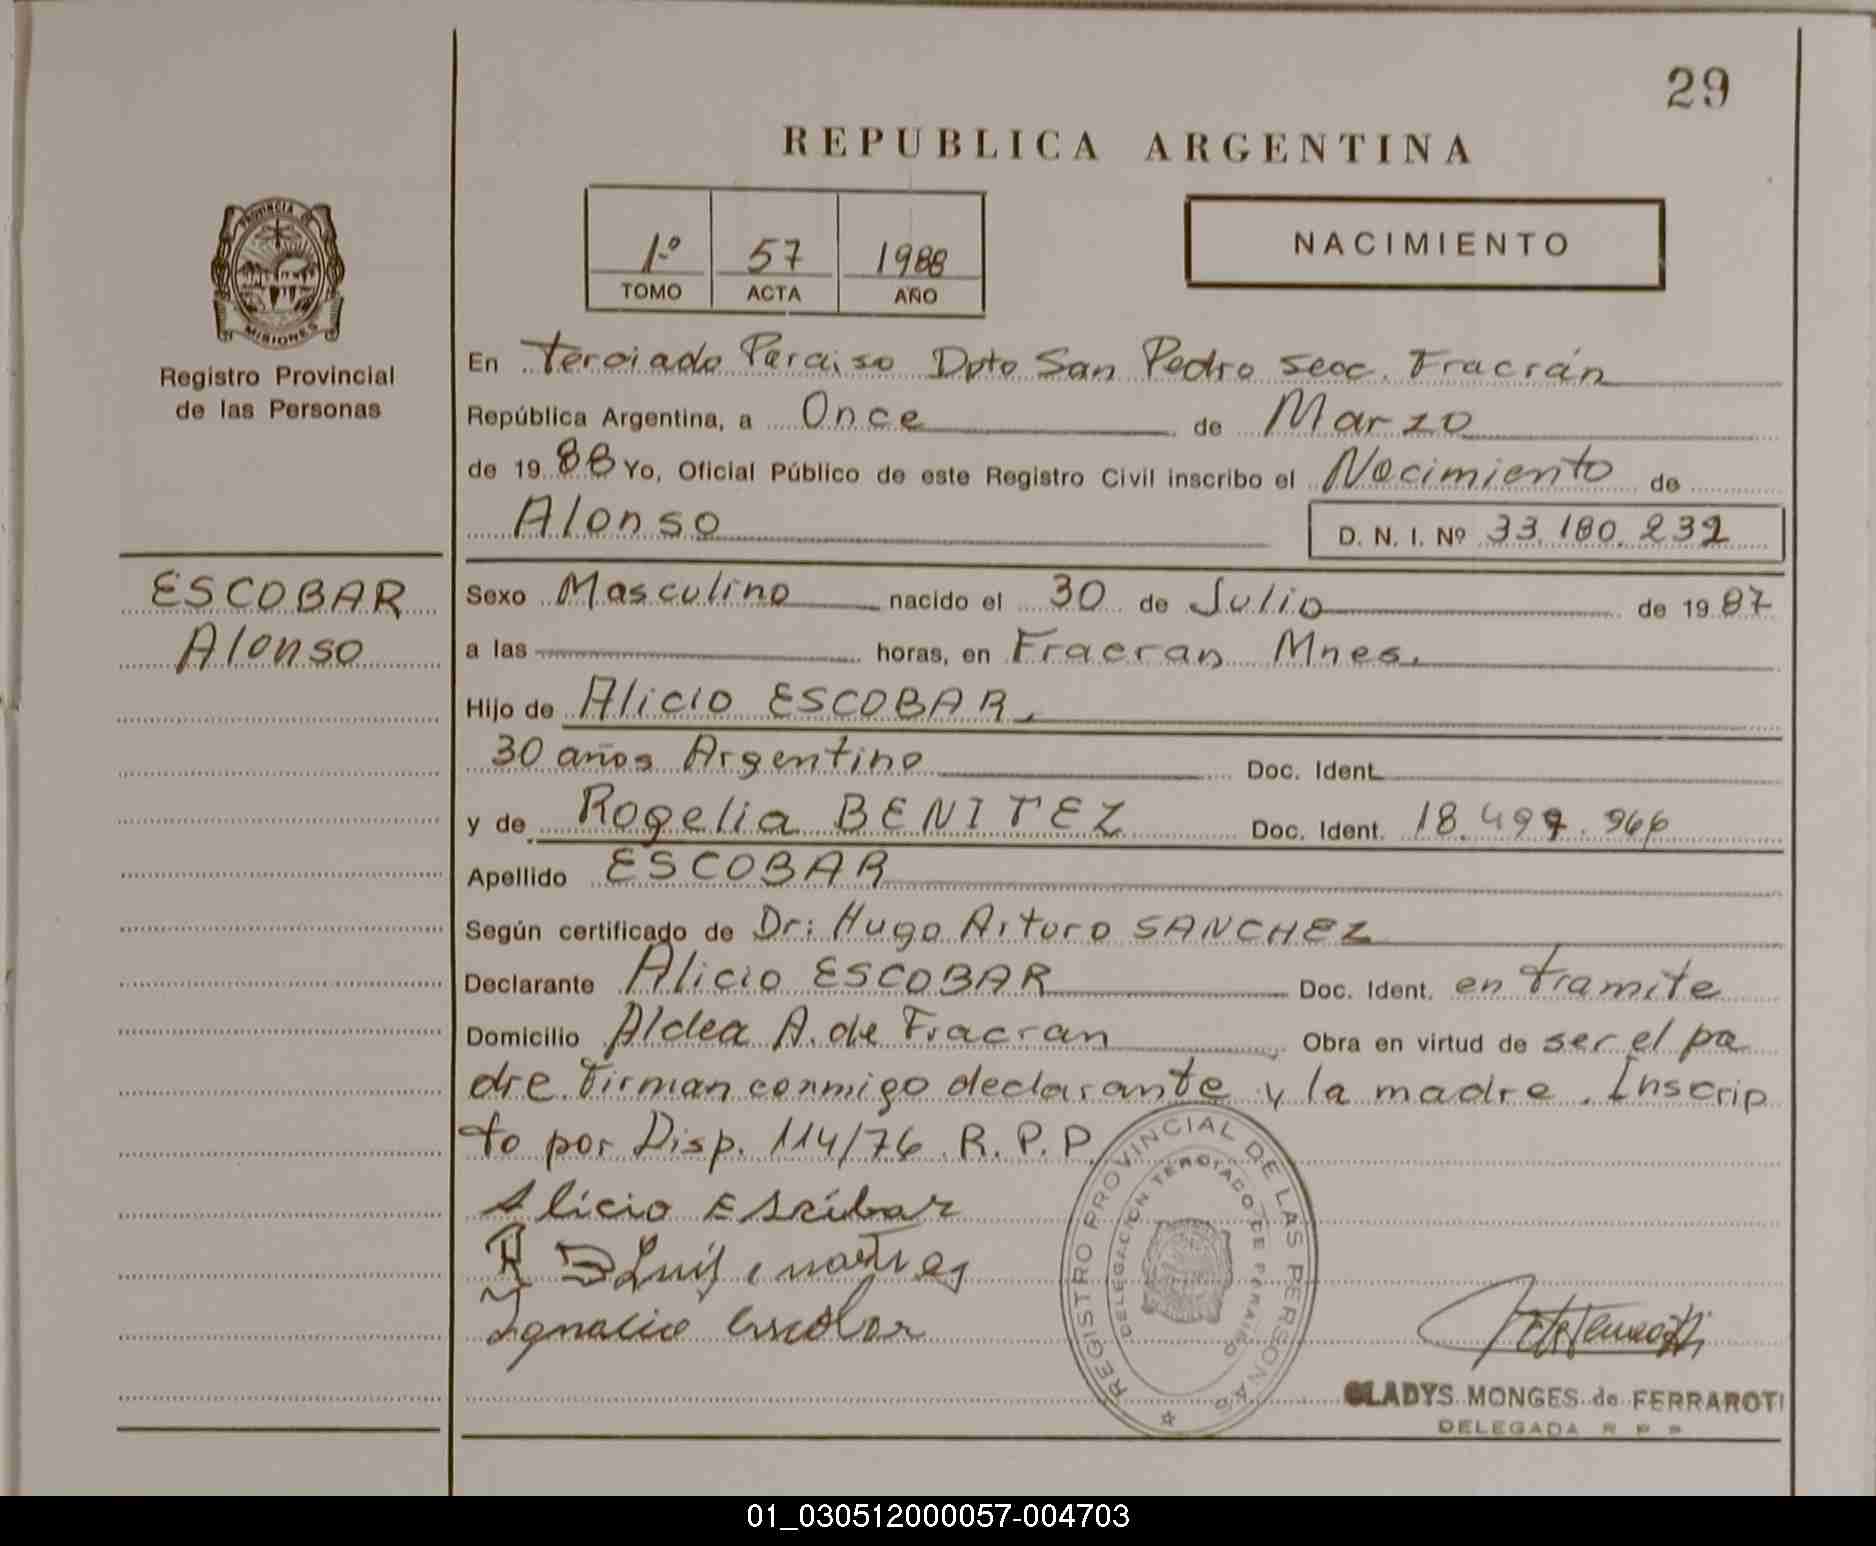 29
REPUBLICA ARGENTINA
PROVINCIA DE
MISIONES
Registro Provincial
de las Personas
1º 57 1988
TOMO ACTA AÑO
NACIMIENTO
En Terciado Paraiso Dpto San Pedro secc. Fracrán
República Argentina, a Once de Marzo
de 1988 Yo, Oficial Público de este Registro Civil inscribo el Nacimiento de
Alonso D. N. I. Nº 33.180.232
ESCOBAR
Alonso
Sexo Masculino nacido el 30 de Julio de 1987
a las horas, en Fracran Mnes.
Hijo de Alicio ESCOBAR.
30 años Argentino Doc. Ident.
y de Rogelia BENITEZ Doc. Ident. 18.499.966
Apellido ESCOBAR
Según certificado de Dr: Hugo Arturo SANCHEZ
Declarante Alicio ESCOBAR Doc. Ident. en tramite
Domicilio Aldea A. de Fracran Obra en virtud de ser el pa
dre. Firman conmigo declarante y la madre. Inscrip
to por Disp. 114/76 R.P.P.
Alicio Escibar
Luis
Ignacio Escobar
REGISTRO PROVINCIAL DE LAS PERSONAS
DELEGACION TERCIADO DE PARAISO
GLADYS MONGES de FERRAROTI
DELEGADA R P P
01_030512000057-004703